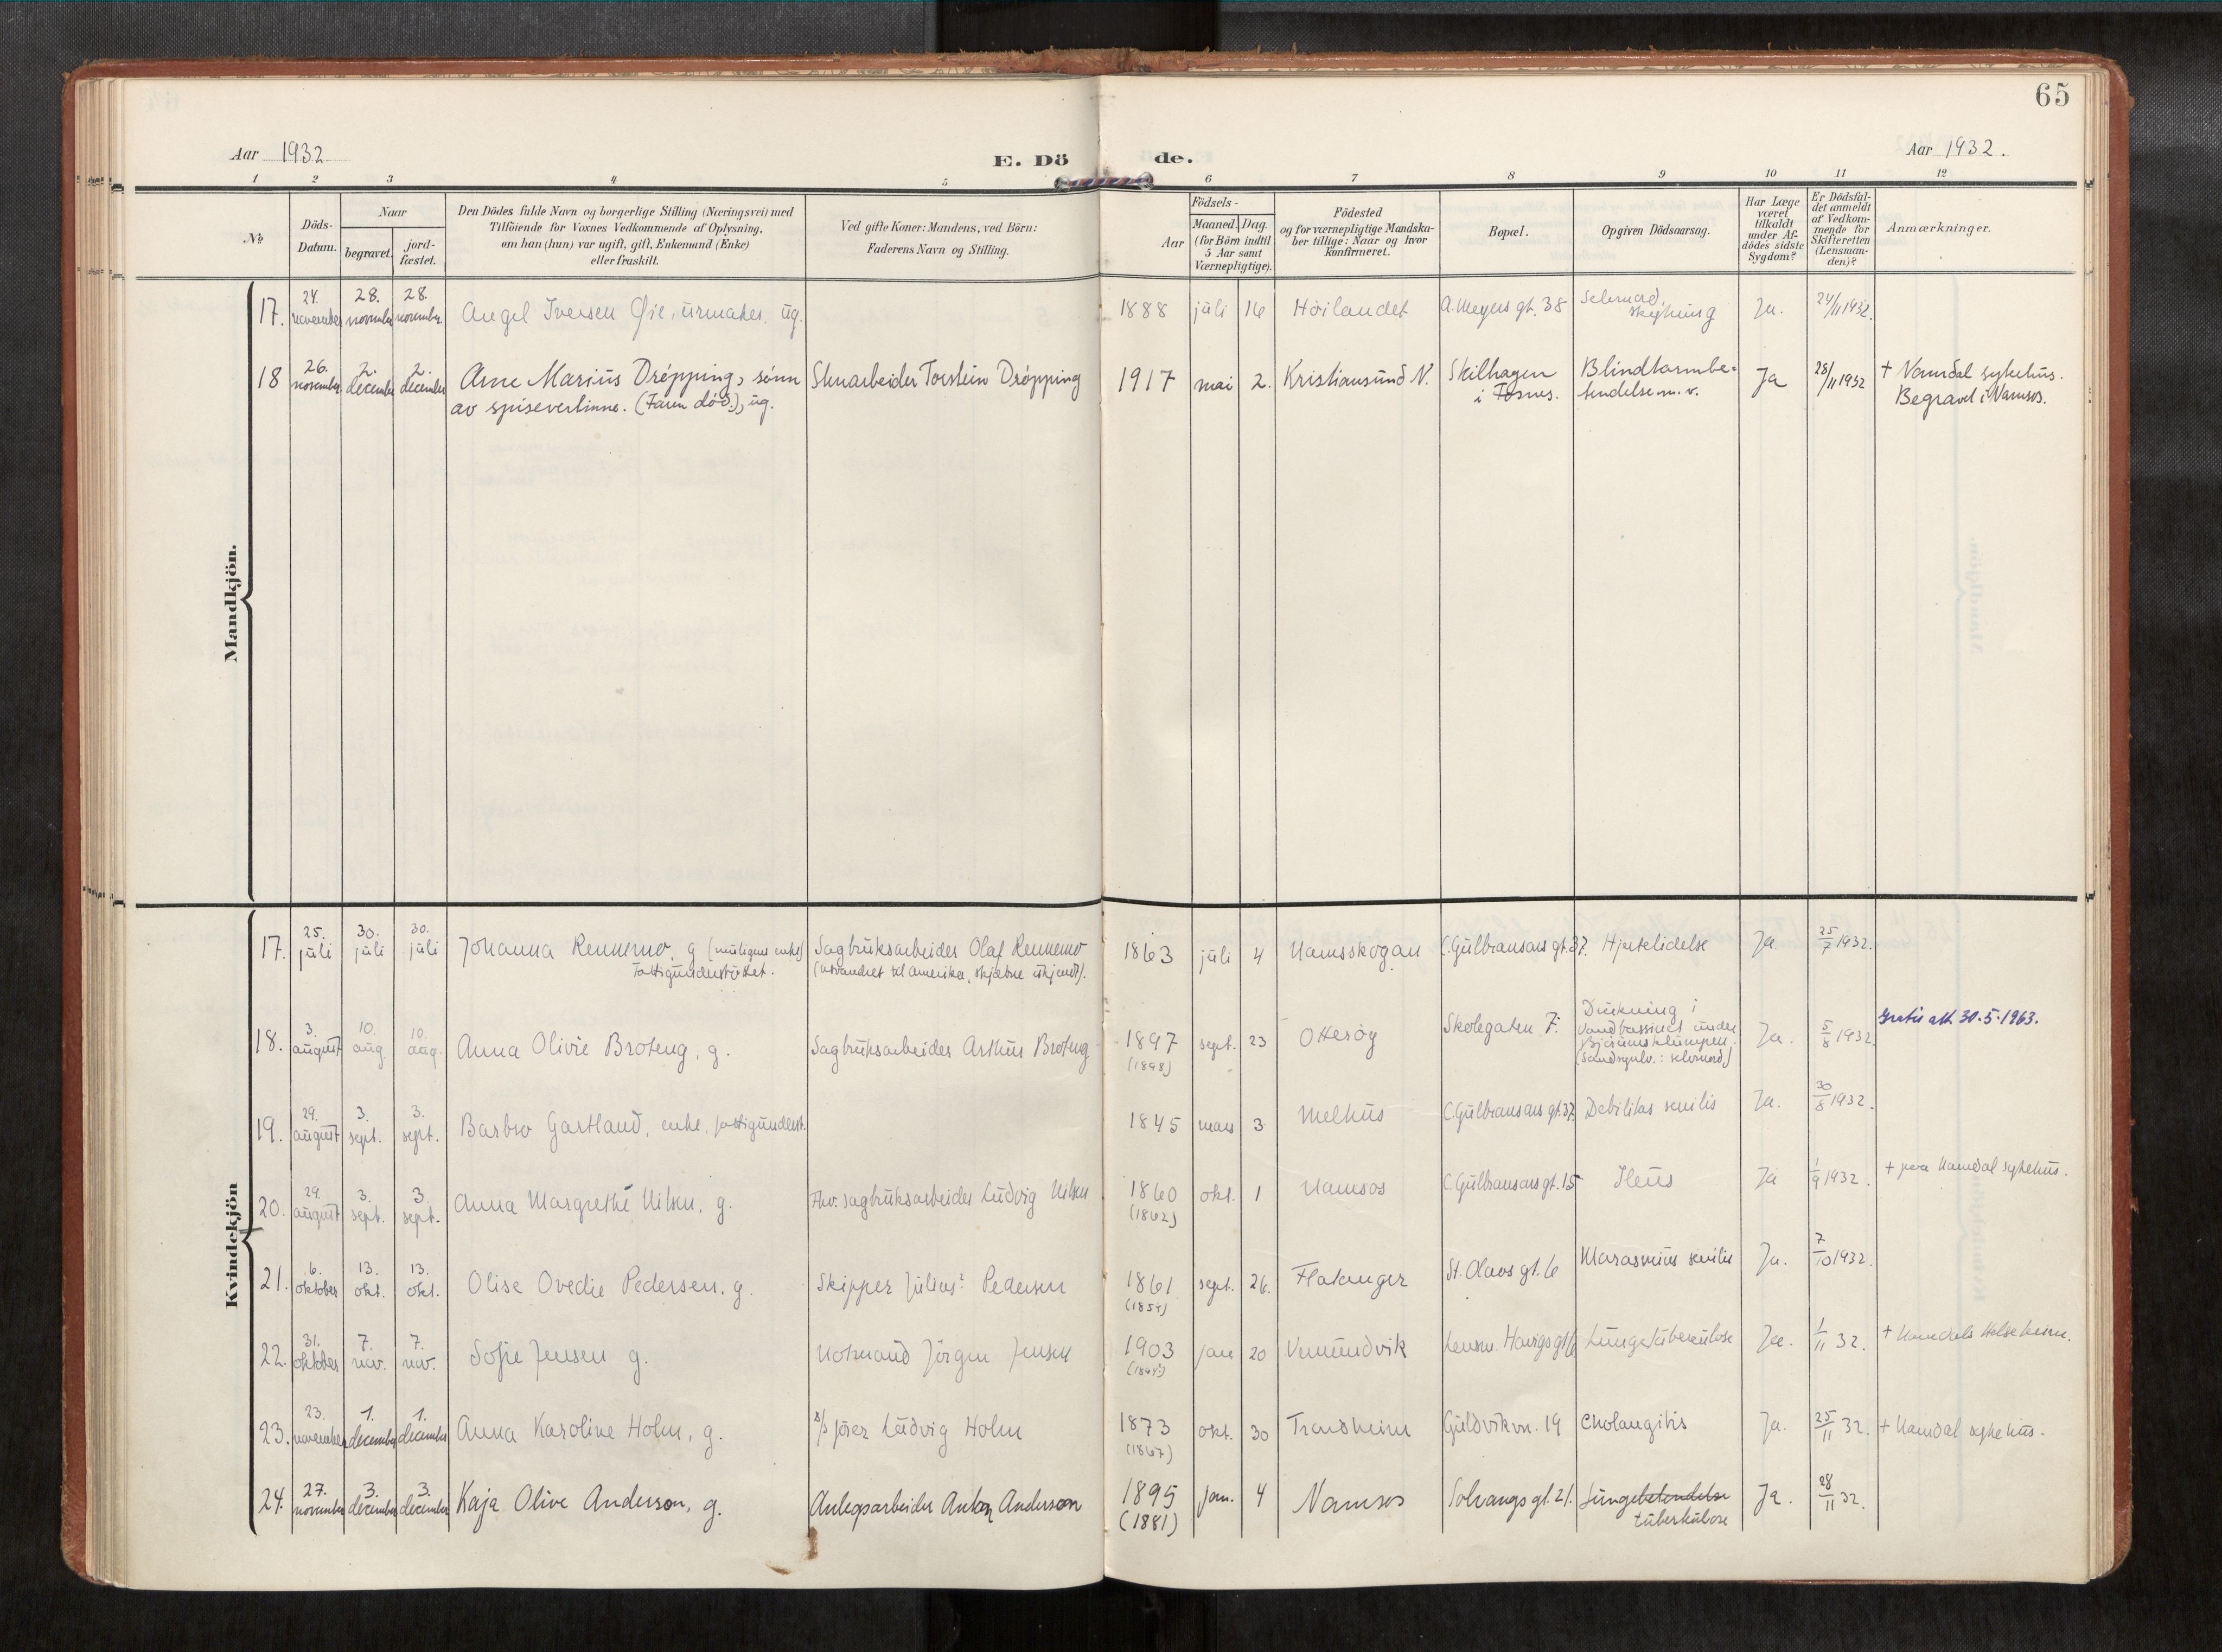 65
Aar 1932
E. Dö de.
Aar 1932.
1 2 3 4 5 6 7 8 9 10 11 12
No
Döds-
Datum.
Naar
begravet.
jord-
fæstet.
Den Dödes fulde Navn og borgerlige Stilling (Næringsvei) med
Tilföiende for Voxnes Vedkommende af Oplysning,
om han (hun) var ugift, gift, Enkemand (Enke)
eller fraskilt.
Ved gifte Koner: Mandens, ved Börn:
Faderens Navn og Stilling.
Födsels-
Aar
Maaned.
Dag.
(for Börn indtil
5 Aar samt
Værnepligtige).
Födested
og for værnepligtige Mandska-
ber tillige: Naar og hvor
konfirmeret.
Bopæl.
Opgiven Dödsaarsag.
Har Læge
været
tilkaldt
under Af-
dödes sidste
Sygdom?
Er Dödsfal-
det anmeldt
af Vedkom-
mende for
Skifteretten
(Lensman-
den)?
Anmærkninger.
Mandkjön.
17. 24. november 28. november 28. november Angel Iversen Øie, urmaker, ug. 1888 juli 16 Höilandet A. Meyers gt. 38 Selvmord, Ja. 24/11 1932.
18 26. november 2. december 2. december Arne Marius Dröpping, sönn Torstein Dröpping 1917 mai 2. Kristiansund N. Skilhagen Blindtarmbe- Ja 28/11 1932 + Namdal sykehus.
av spisevertinne. (Faren död.), ug. i Fosnes. tendelse m. v. Begravet i Namsos.
Kvindekjön
17. 25. juli 30. juli 30. juli Johanna Rennemo, g (muligens enke) Sagbruksarbeider Olaf Rennemo 1863 juli 4 Namsskogan C. Gulbransons gt. 37. Hjertelidelse Ja 25/7 1932.
Fattigunderstöttet. (utvandret til Amerika, skjæbne ukjendt).
18. 3. august 10. aug. 10. aug. Anna Olivie Broteng, g. Sagbruksarbeider Arthur Broteng 1897 (1898) sept. 23 Otteröy Skolegaten 7. Drukning i
Vandbassinet under
Bjørumsklumpen.
(Sandsynlv.: selvmord) Ja. 5/8 1932. Gratis att. 30.5.1963.
19. 29. august 3. sept. 3. sept. Barbro Gartland, enke, fattigunderst. 1845 mars 3 Melhus C. Gulbransons gt. 37. Debilitas senilis Ja. 30/8 1932.
20. 29. august 3. sept. 3. sept. Anna Margrethe Nilsen, g. Fhv. sagbruksarbeider Ludvig Nilsen 1860 (1862) okt. 1 Namsos C. Gulbransons gt. 15 Ileus Ja 1/9 1932. + paa Namdal sykehus.
21. 6. oktober 13. okt. 13. okt. Olise Ovedie Pedersen, g. Skipper Julius? Pedersen 1861 (1854) sept. 26. Flatanger St. Olavs gt. 6 Marasmus senilis Ja. 7/10 1932.
22. 31. oktober 7. nov. 7. nov. Sofie Jensen g. Kolmand Jörgen Jensen 1903 jan 20 Vemundvik Lungetuberkulose Ja. 1/11 32. + Namdals Helseheim.
23. 23. november 1. december 1. december Anna Karoline Holm, g. Ludvig Holm 1873 (1867) okt. 30 Trondheim Guldvikvn. 19 Cholangitis Ja. 25/11 32. + Namdal sykehus.
24. 27. november 3. december 3. december Kaja Olive Anderson, g. Anlegsarbeider Anton Anderson 1895 (1881) jan. 4 Namsos Solvangs gt. 21. Lungebetendelse
tuberkulose Ja. 28/11 32.